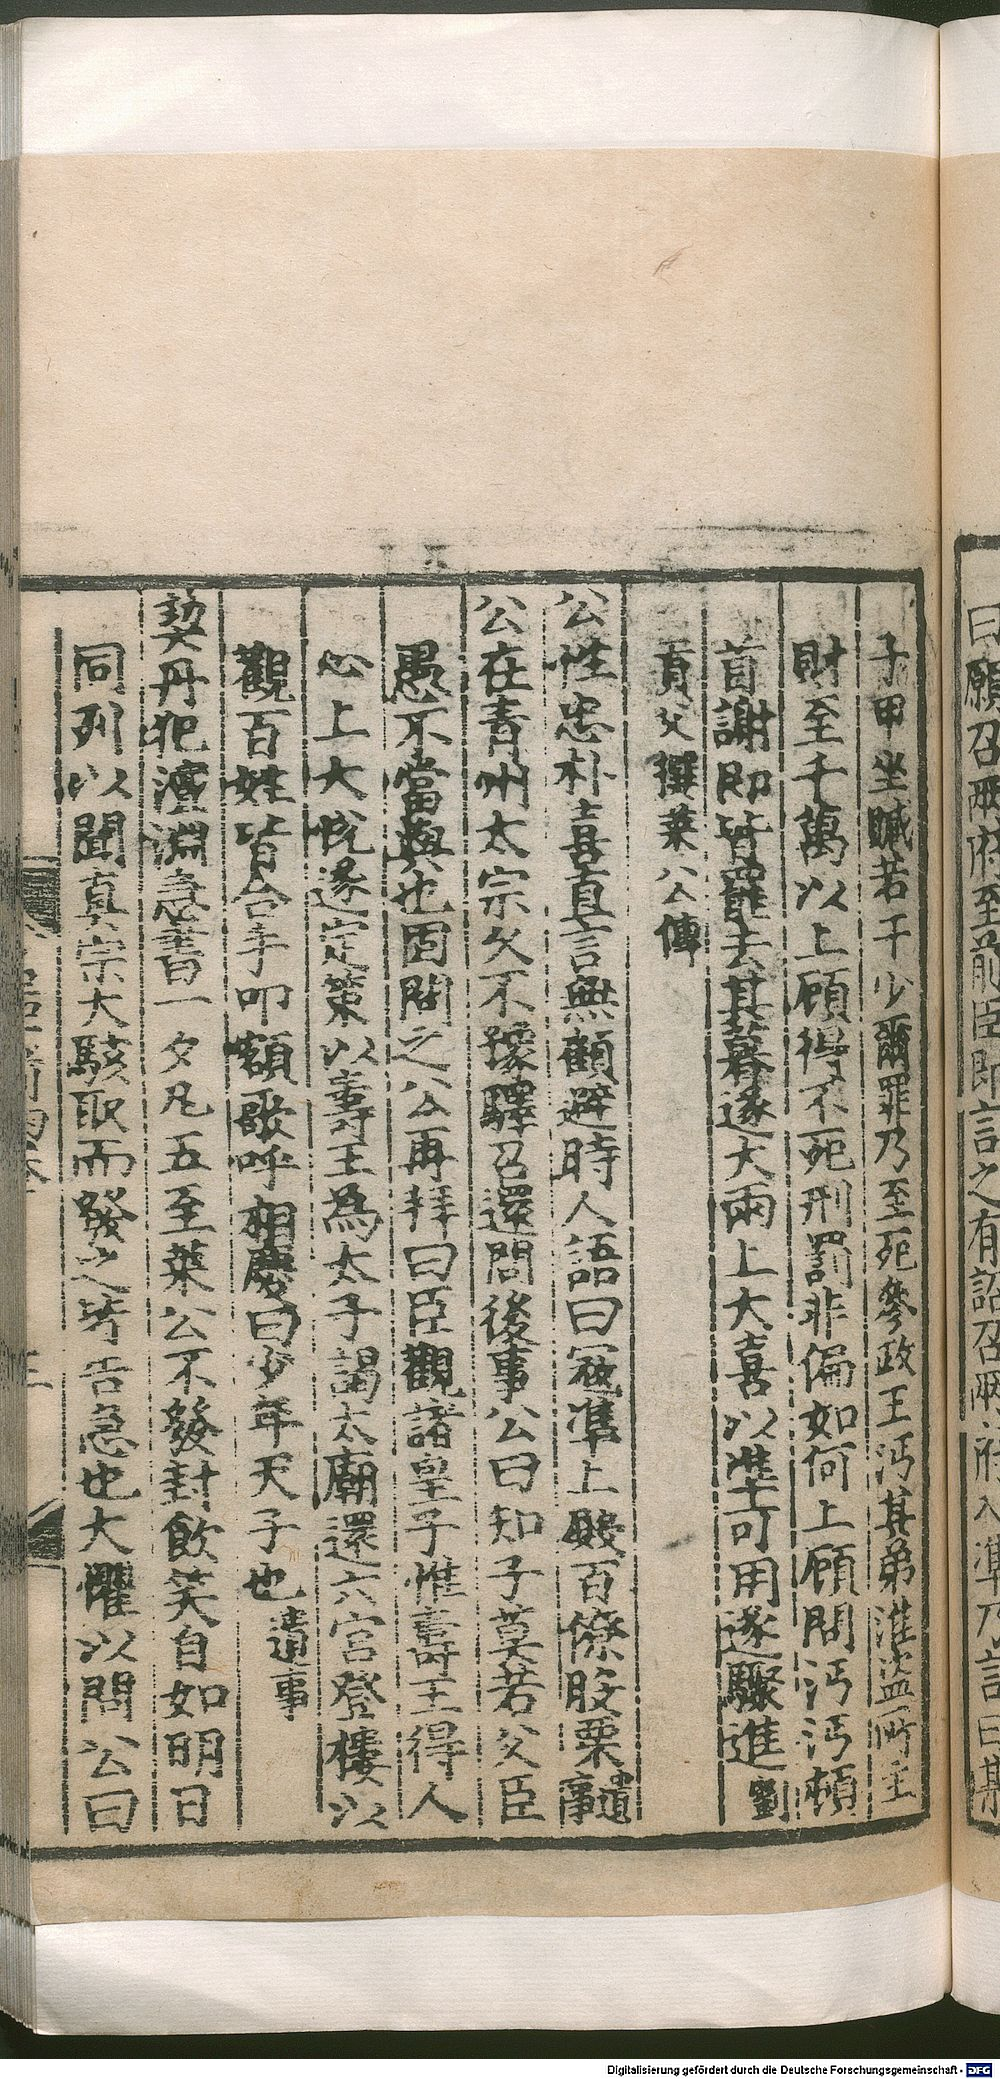 曰願召兩府至前臣即言之有詔召兩府入準乃言曰某
子甲坐贓若干少爾罪乃至死參政王沔其弟淮盜所主
財至千萬以上顧得不死刑罰非偏如何上顧問沔沔頓
首謝即皆罷去其暮遂大雨上大喜以準可用遂驟進劉
貢父撰萊公傳
公性忠朴喜直言無顧避時人語曰寇準上殿百僚股栗遺事
公在青州太宗久不豫驛召還問後事公曰知子莫若父臣
愚不當與也固問之公再拜曰臣觀諸皇子惟壽王得人
心上大悅遂定策以壽王為太子謁太廟還六宮登樓以
觀百姓皆合手叩額歌呼相慶曰少年天子也遺事
契丹犯澶淵急書一夕凡五至萊公不發封飲笑自如明日
同列以聞真宗大駭取而發之皆告急也大懼以問公曰
Digitalisierung gefördert durch die Deutsche Forschungsgemeinschaft - DFG